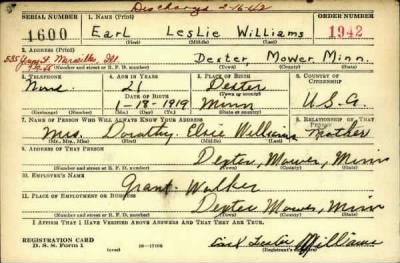 Discharged 2-16-42
SERIAL NUMBER 1. NAME (Print)
1600 Earl Leslie Williams 1942
(First) (Middle) (Last)
2. ADDRESS (Print)
535 Marseilles, Ill. Dexter, Mower Minn.
(Number and street or R. F. D. number) (Town) (County) (State)
3. TELEPHONE 4. AGE IN YEARS 5. PLACE OF BIRTH 6. COUNTRY OF CITIZENSHIP
None 21 Dexter
DATE OF BIRTH (Town or county)
1-18-1919 Minn U.S.A.
(Mo.) (Day) (Yr.) (State or country)
7. NAME OF PERSON WHO WILL ALWAYS KNOW YOUR ADDRESS 8. RELATIONSHIP OF THAT PERSON
Mrs. Dorothy Elsie Williams Mother
(Mr., Mrs., Miss) (First) (Middle) (Last)
9. ADDRESS OF THAT PERSON
Dexter, Mower, Minn
(Number and street or R. F. D. number) (Town) (County) (State)
10. EMPLOYER'S NAME
Grant Walker
11. PLACE OF EMPLOYMENT OR BUSINESS
Dexter Mower, Minn
(Number and street or R. F. D. number) (Town) (County) (State)
I AFFIRM THAT I HAVE VERIFIED ABOVE ANSWERS AND THAT THEY ARE TRUE.
REGISTRATION CARD
D. S. S. Form 1 Earl Leslie Williams
(over) (Registrant's signature)